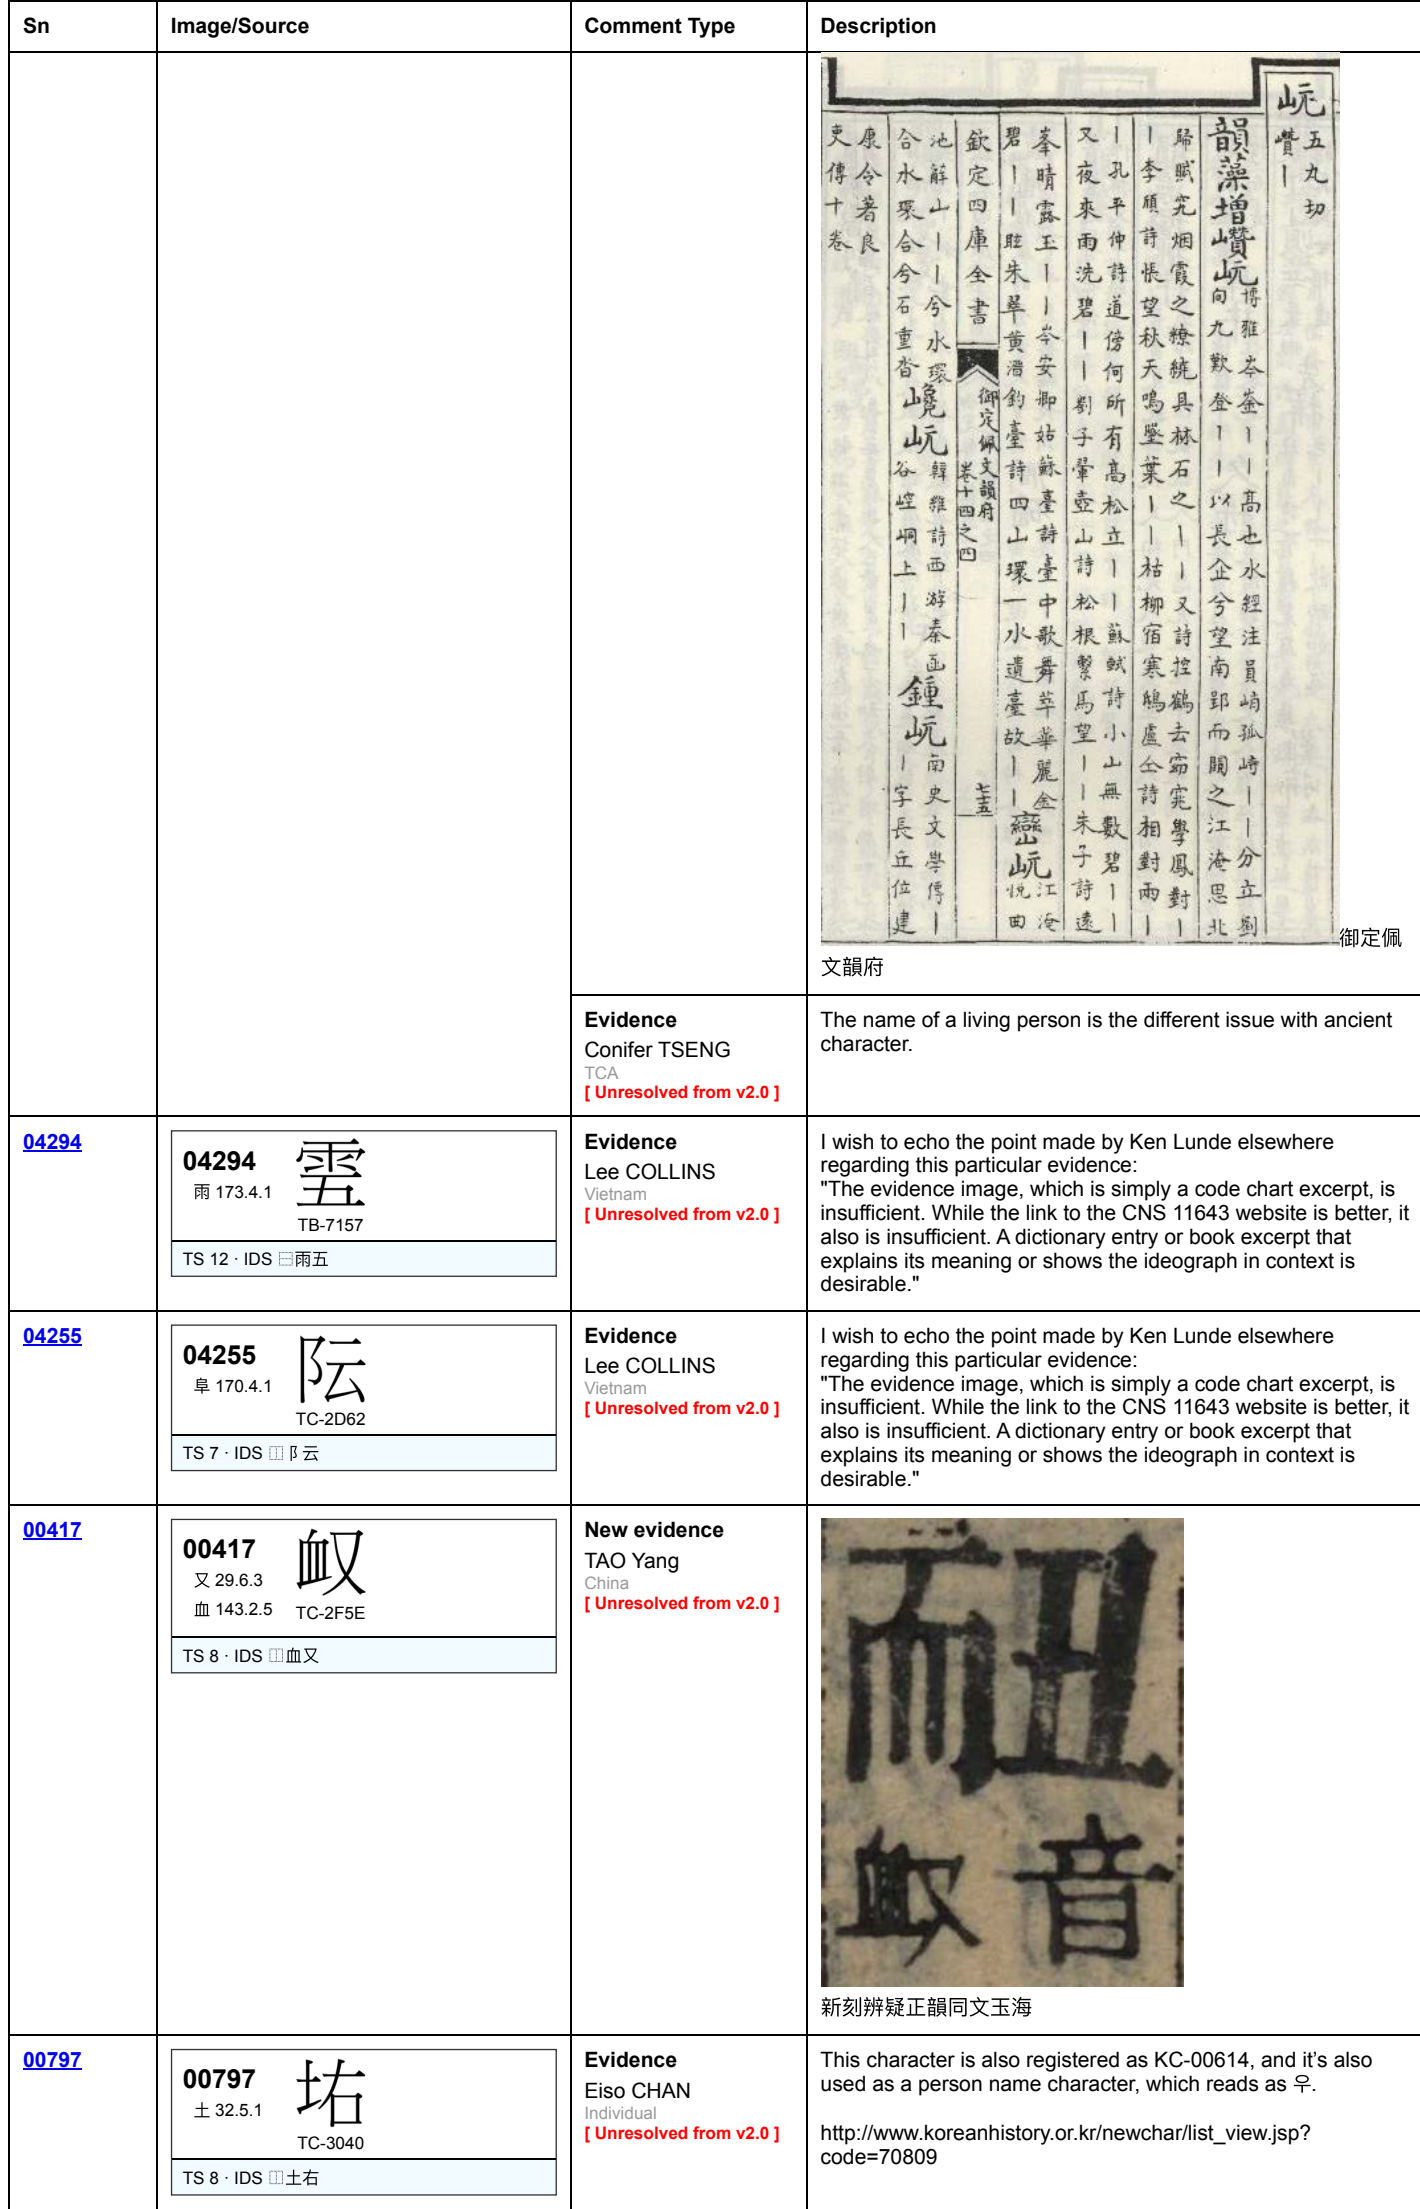 Sn
Image/Source
Comment Type
Description
岏
五丸切
巑丨
韻藻增巑岏
博雅岑崟丨丨高也水經注員嶠孤峙丨丨分立劉
向九歎登丨丨以長企兮望南郢而闚之江淹思北
歸賦究烟霞之繚繞具林石之丨丨又詩控鶴去窈窕學鳳對丨
丨李頎詩悵望秋天鳴墜葉丨丨枯柳宿寒鴟盧仝詩相對兩丨
丨孔平仲詩道傍何所有高松立丨丨蘇軾詩小山無數碧丨丨
又夜來雨洗碧丨丨劉子翬壺山詩松根繫馬望丨丨朱子詩遠
峯晴露玉丨丨岑安卿姑蘇臺詩臺中歌舞萃華麗金
碧丨丨眩朱翠黃溍釣臺詩四山環一水遺臺故丨丨
巒岏
江淹
悅曲
欽定四庫全書
御定佩文韻府
卷十四之四
七五
池解山丨丨兮水環
合水環合兮石重沓
巉岏
韓維詩西游秦函
谷崆峒上丨丨
鍾岏
南史文學傳丨
丨字長丘位建
康令著良
吏傳十卷
御定佩
文韻府
Evidence
Conifer TSENG
TCA
[ Unresolved from v2.0 ]
The name of a living person is the different issue with ancient
character.
04294
04294
雨 173.4.1
TB-7157
TS 12 · IDS ⿱雨五
Evidence
Lee COLLINS
Vietnam
[ Unresolved from v2.0 ]
I wish to echo the point made by Ken Lunde elsewhere
regarding this particular evidence:
"The evidence image, which is simply a code chart excerpt, is
insufficient. While the link to the CNS 11643 website is better, it
also is insufficient. A dictionary entry or book excerpt that
explains its meaning or shows the ideograph in context is
desirable."
04255
04255
阜 170.4.1
TC-2D62
TS 7 · IDS ⿰阝云
Evidence
Lee COLLINS
Vietnam
[ Unresolved from v2.0 ]
I wish to echo the point made by Ken Lunde elsewhere
regarding this particular evidence:
"The evidence image, which is simply a code chart excerpt, is
insufficient. While the link to the CNS 11643 website is better, it
also is insufficient. A dictionary entry or book excerpt that
explains its meaning or shows the ideograph in context is
desirable."
00417
00417
又 29.6.3
血 143.2.5
TC-2F5E
TS 8 · IDS ⿰血又
New evidence
TAO Yang
China
[ Unresolved from v2.0 ]
音
新刻辨疑正韻同文玉海
00797
00797
土 32.5.1
TC-3040
TS 8 · IDS ⿰土右
Evidence
Eiso CHAN
Individual
[ Unresolved from v2.0 ]
This character is also registered as KC-00614, and it's also
used as a person name character, which reads as 우.
http://www.koreanhistory.or.kr/newchar/list_view.jsp?
code=70809